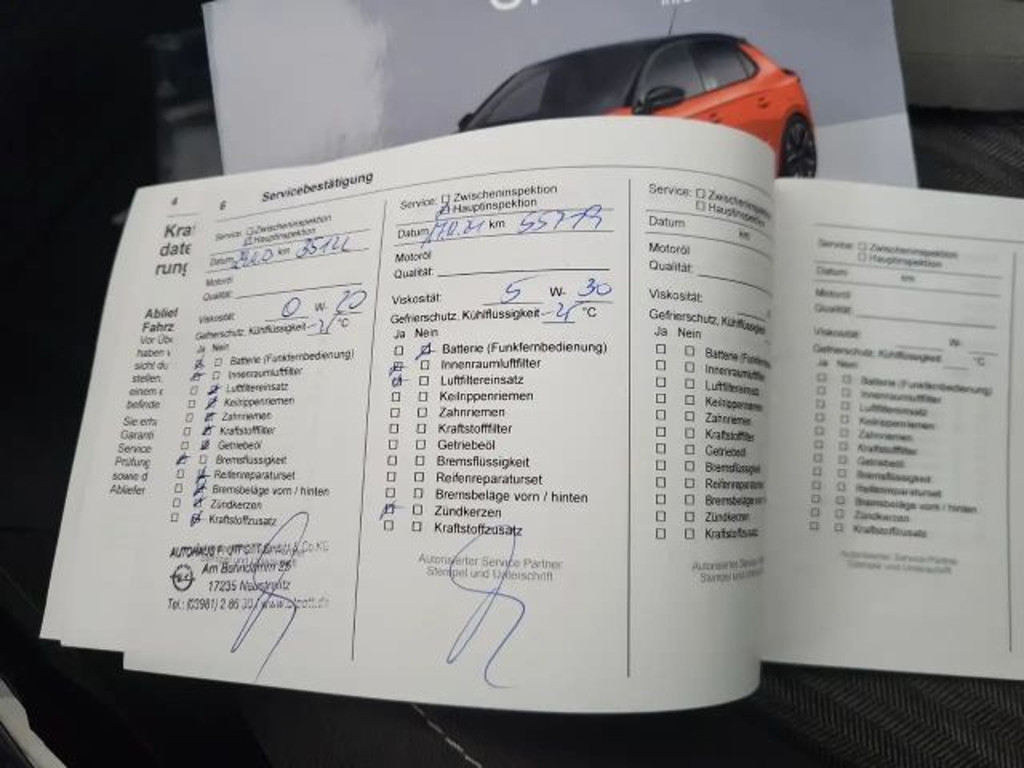 4
Kra
date
rung
Ablief
Fahrz
Vor Übe
haben
sicht du
stellen.
einem
befinde
Sie erh
Garanti
Service
Prüfung
sowie d
Abliefer
6 Servicebestätigung
Service: Zwischeninspektion
Hauptinspektion
Datum km
Motoröl
Qualität:
Viskosität: 0 W- 20
Gefrierschutz, Kühlflüssigkeit °C
Ja Nein
Batterie (Funkfernbedienung)
Innenraumluftfilter
Luftfiltereinsatz
Keilrippenriemen
Zahnriemen
Kraftstofffilter
Getriebeöl
Bremsflüssigkeit
Reifenreparaturset
Bremsbeläge vorn / hinten
Zündkerzen
Kraftstoffzusatz
17235 Neustrelitz
Service: Zwischeninspektion
Hauptinspektion
Datum km
Motoröl
Qualität:
Viskosität: 5 W- 30
Gefrierschutz, Kühlflüssigkeit °C
Ja Nein
Batterie (Funkfernbedienung)
Innenraumluftfilter
Luftfiltereinsatz
Keilrippenriemen
Zahnriemen
Kraftstofffilter
Getriebeöl
Bremsflüssigkeit
Reifenreparaturset
Bremsbeläge vorn / hinten
Zündkerzen
Kraftstoffzusatz
Autorisierter Service Partner
Stempel und Unterschrift
Service: Zwischeninspektion
Hauptinspektion
Datum km
Motoröl
Qualität:
Viskosität:
Gefrierschutz, Kühlflüssigkeit
Ja Nein
Batterie (Funkfe
Innenraumluftfilter
Luftfiltereinsatz
Keilrippenriemen
Zahnriemen
Kraftstofffilter
Getriebeöl
Bremsflüssigkeit
Reifenreparaturset
Bremsbeläge vorn
Zündkerzen
Kraftstoffzusatz
Autorisierter Service
Stempel und Unter
Service: Zwischeninspektion
Hauptinspektion
Datum km
Motoröl
Qualität:
Viskosität: W-
Gefrierschutz, Kühlflüssigkeit °C
Ja Nein
Batterie (Funkfernbedienung)
Innenraumluftfilter
Luftfiltereinsatz
Keilrippenriemen
Zahnriemen
Kraftstofffilter
Getriebeöl
Bremsflüssigkeit
Reifenreparaturset
Bremsbeläge vorn / hinten
Zündkerzen
Kraftstoffzusatz
Autorisierter Service Partner
Stempel und Unterschrift